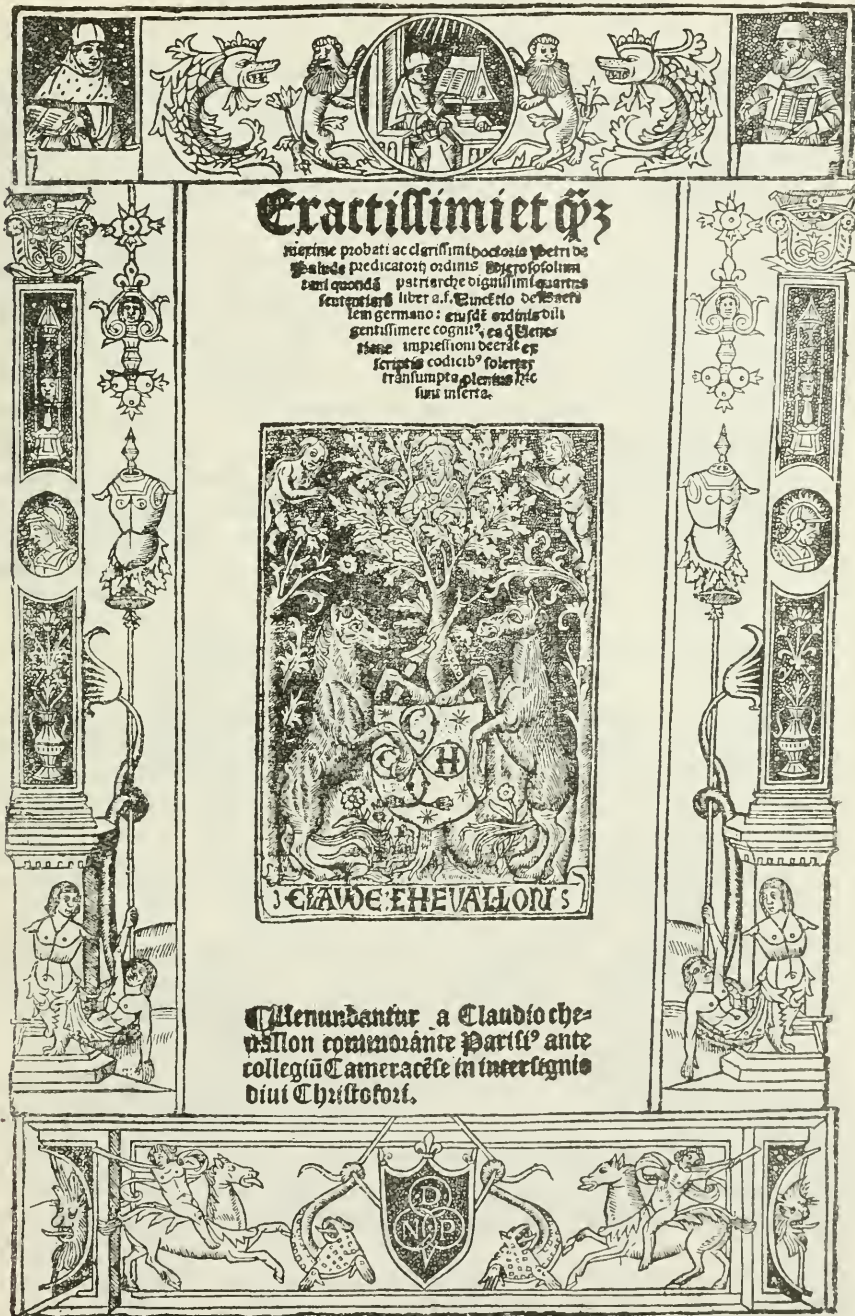 Exactissimi et qȝ
maxime probati ac clarissimi doctoris Petri de
Palude predicatorū ordinis Hierosolimi
tani quondā patriarche dignissimi quartus
sententiarū liber a.f. Vincētio de
lem germano: eiusdē ordinis dili
gentissime recognitꝰ, ea q̄ Vene
impressioni deerāt ex
scriptis codicibꝰ solerter
transumpta plenius hic
sunt inserta.
C H
CLAVDE:CHEVALLON
¶ Venundantur a Claudio che-
uallon commorante Parisiꝰ ante
collegiū Cameracēse in intersignio
diui Christofori.
D
N P